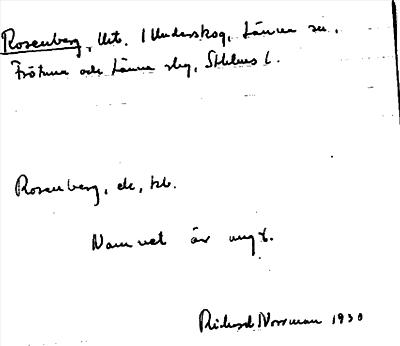 Rosenberg, Utt. i Underskog, Länna sn.
Frötuna och Länna slg, Sthlms l.
Rosenberg, ek, kb.
Namnet är ungt.
Rickard Norrman 1930